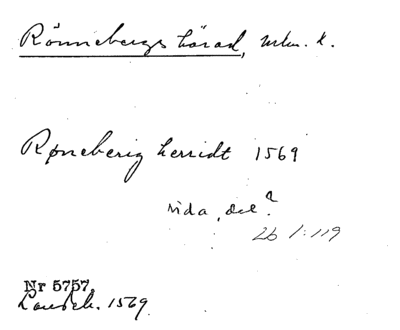 Rönnebergs härad, Mlm. l.
Røneberig herridt 1569
sida, del?
2b 1:119
Nr 5757.
Landeb. 1569